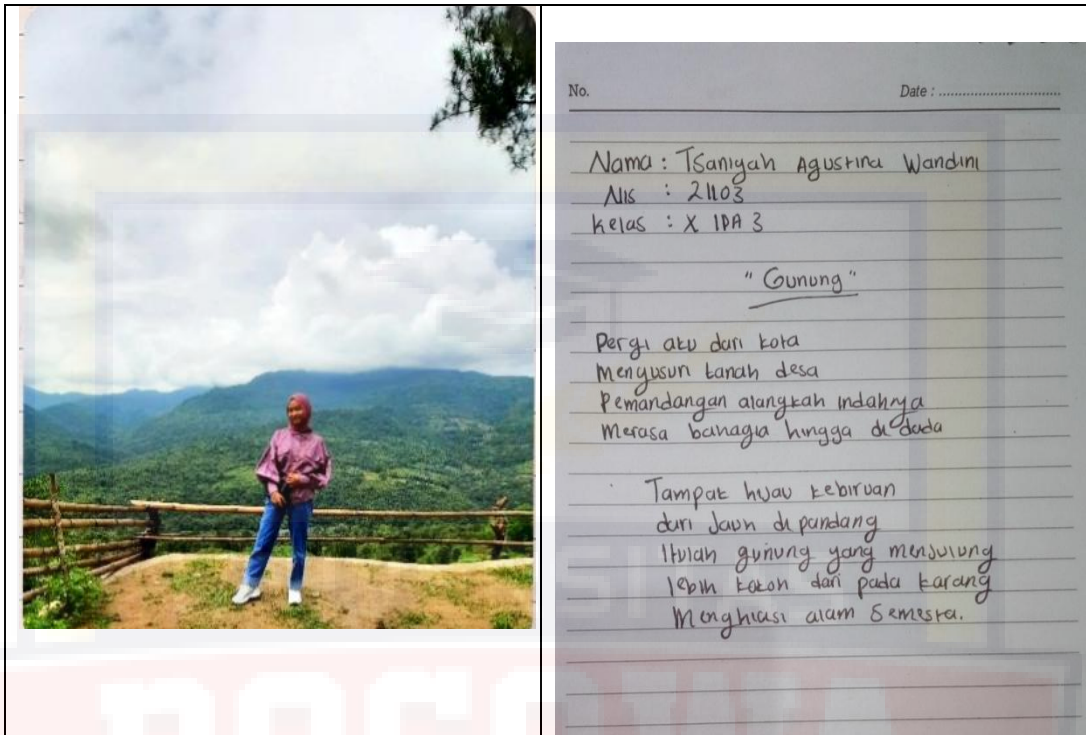 No.
Date : ...............................
Nama : Tsaniyah Agustina Wandini
NIS : 21103
Kelas : X IPA 3
" Gunung "
Pergi aku dari kota
Menyusuri tanah desa
Pemandangan alangkah indahnya
Merasa bahagia hingga di dada
Tampak hijau kebiruan
dari Jauh di pandang
Itulah gunung yang menjulung
lebih kokoh dari pada karang
Menghiasi alam Semesta.